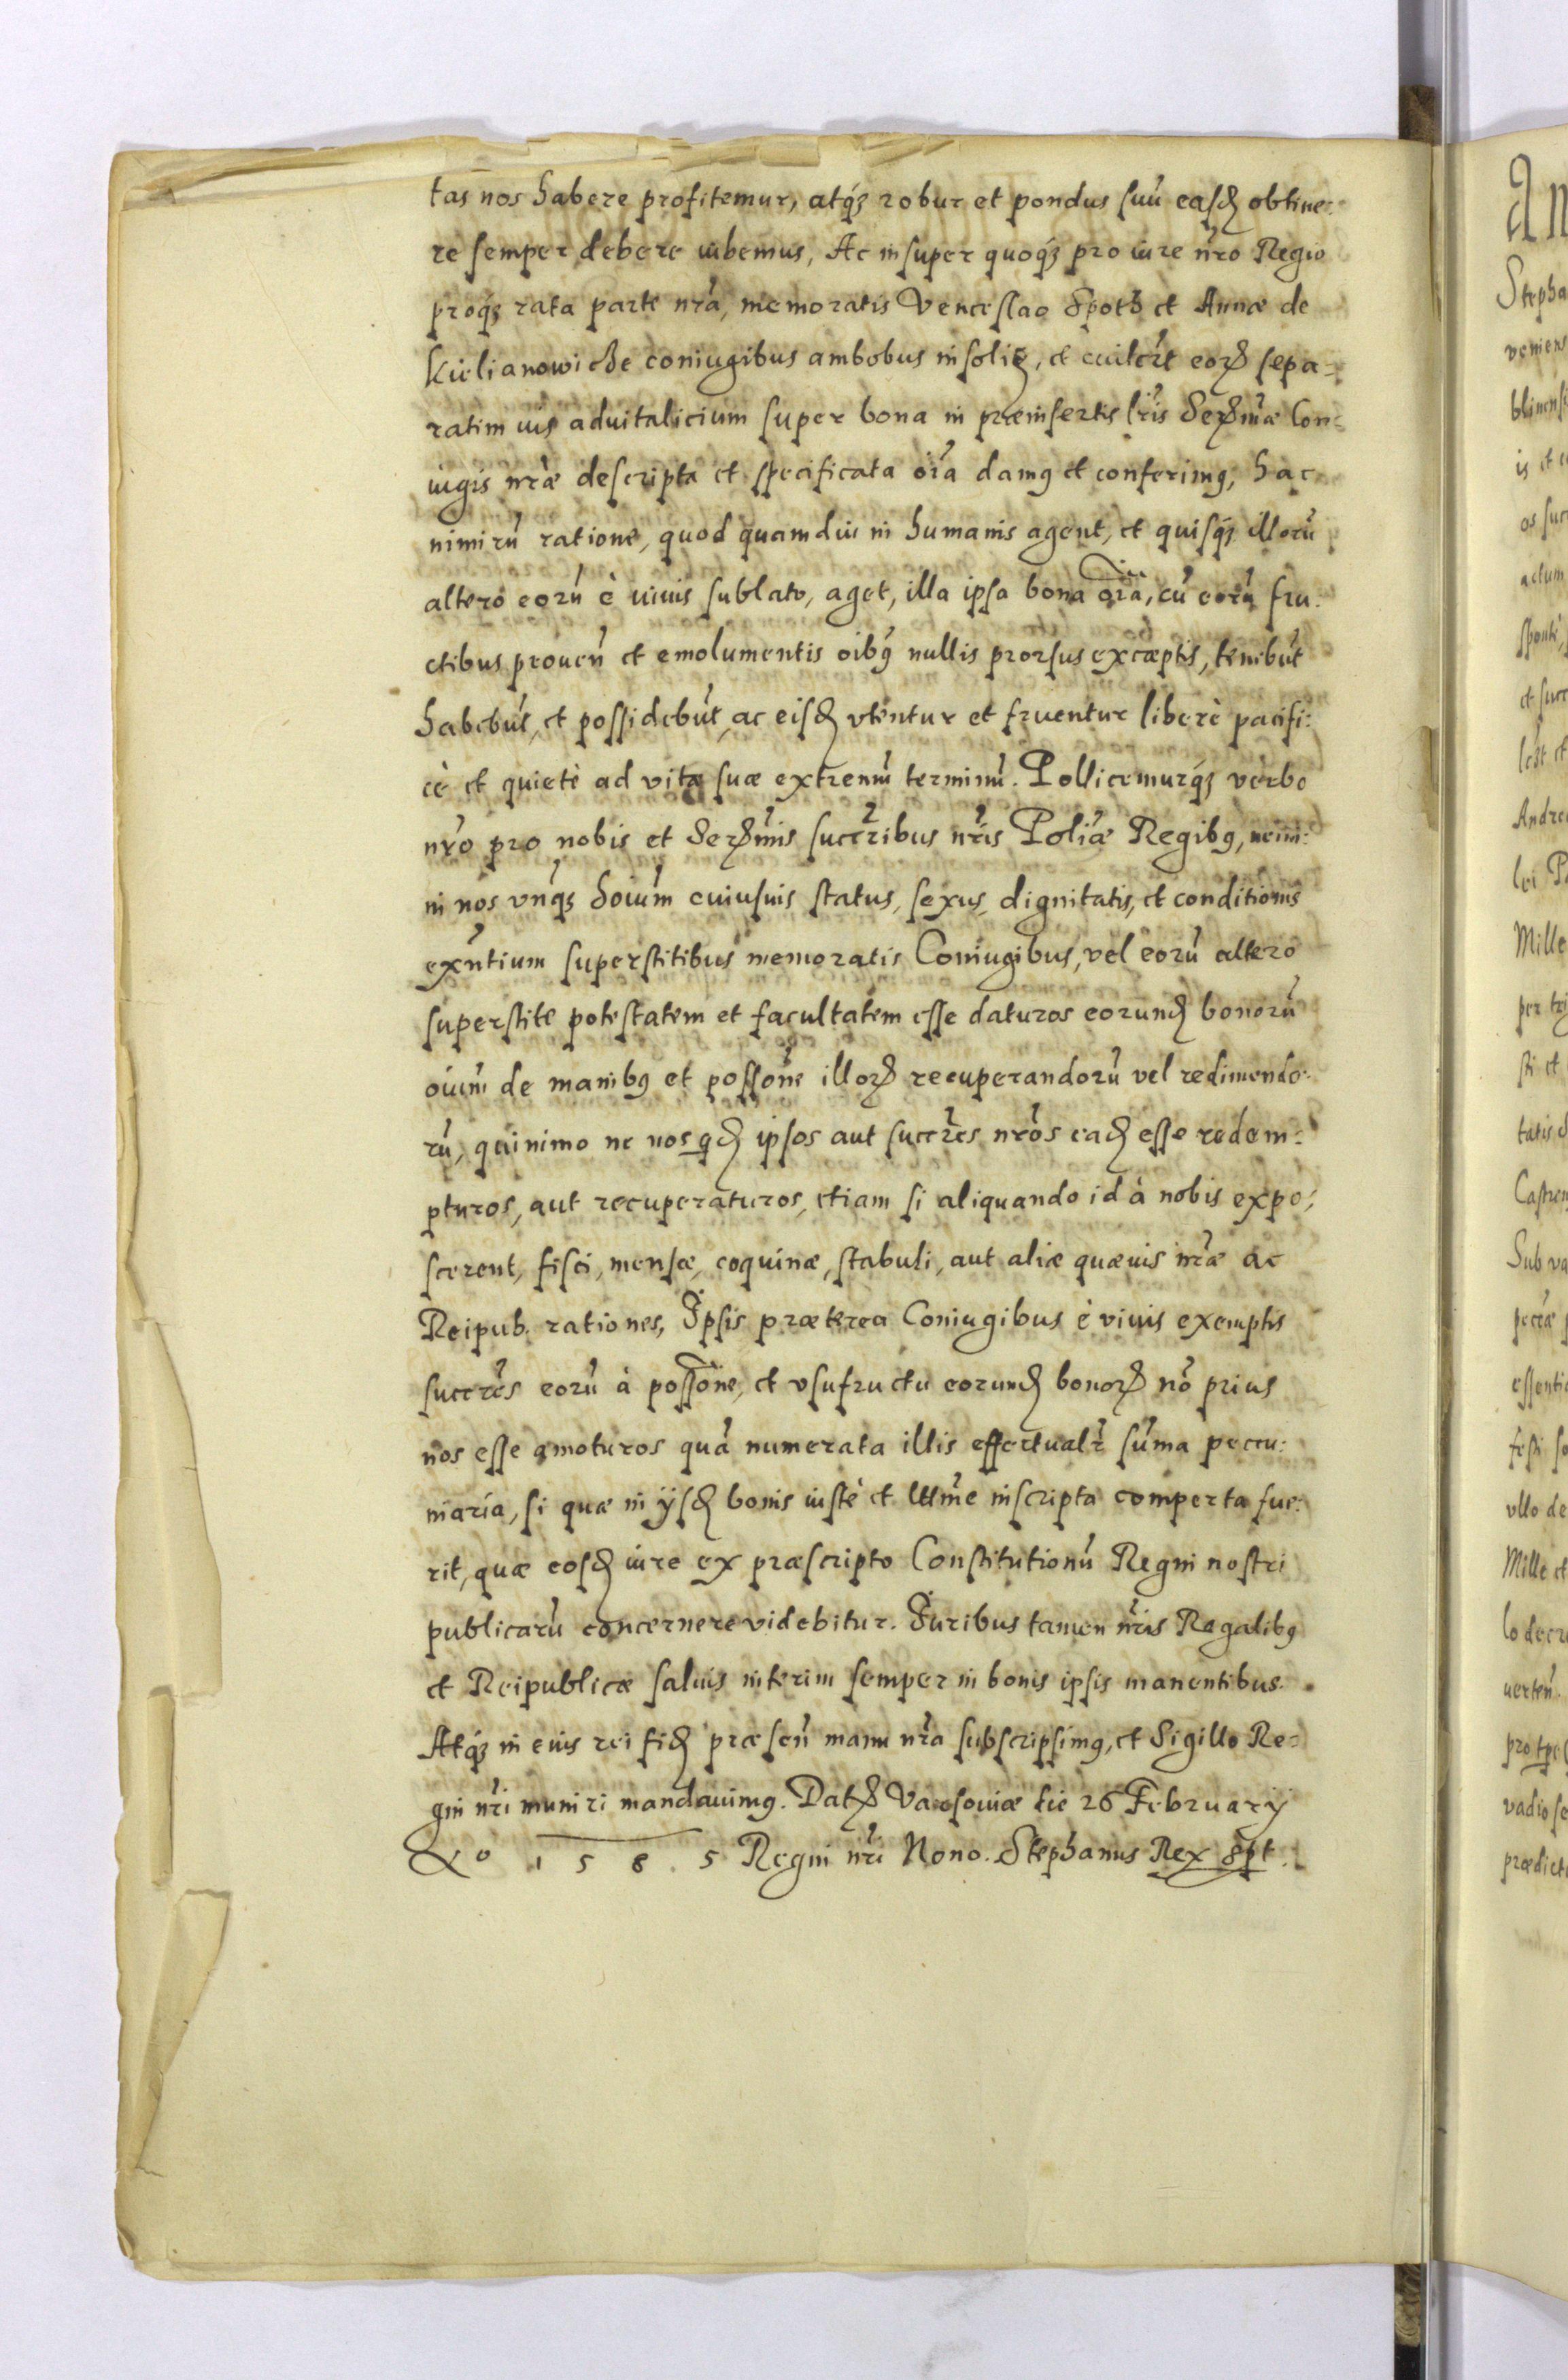 tas nos habere profitemur, atq́ꝫ robur et pondus suũ easꝺ obtine:
re semper debere iubemus, Ac insuper quoq́ꝫ pro iure nr̃o Regio
proq́ꝫ rata parte nr̃a, memoratis Venceslao Spoth et Annæ de
Kielianowiche coniugibus ambobus in soliꝺ, et cuilibet eorꝝ sepa=
ratim ius aduitalicium super bona in præinsertis lr̃is Serꝝmæ Con=
iugis nr̃æ descripta et specificata oĩa damꝰ et conferimꝰ, hac
nimirũ ratione, quod quamdiu in humanis agent, et quisq́ꝫ illorũ
altero eorũ è viuis sublato, aget, illa ipsa bona oĩa, cũ eorũ fru:
ctibus prouen̄ et emolumentis oĩbꝰ nullis prorsus excæptis, tenebũt
habebũt, et possidebũt, ac eisꝺ vtentur et fruentur liberè pacifi:
cè et quietè ad vitæ suæ extremũ terminũ. Pollicemurq́ꝫ verbo
nr̃o pro nobis et Serꝝmis succr̃ibus nr̃is Polĩæ Regibꝰ, nemi:
ni nos vnq́ꝫ hoĩum cuiusuis status, sexus, dignitatis, et conditionis
exñtium superstitibus memoratis Coniugibus, vel eorũ altero
superstite potestatem et facultatem esse daturos eorunꝺ bonorũ
oĩum de manibꝰ et possoñe illorꝝ recuperandorũ vel redimendo:
rũ, quinimo ne nos qꝺ ipsos aut succr̃es nr̃os eaꝺ esse redem:
pturos, aut recuperaturos, etiam si aliquando id à nobis expo:
scerent, fisci, mensæ, coquinæ, stabuli, aut aliæ quæuis nr̃æ ac
Reipub. rationes, Ipsis præterea Coniugibus è viuis exemptis
succr̃es eorũ à possoñe, et vsufructu eorunꝺ bonorꝝ nõ prius
nos esse amoturos quã numerata illis effectualr̃ sũma pecu:
niaria, si quæ in ijsꝺ bonis iustè et lttm̃e inscripta comperta fue:
rit, quæ eosꝺ iure ex præscripto Constitutionũ Regni nostri
publicarũ concernere videbitur. Iuribus tamen nr̃is Regalibꝰ
et Reipublicæ saluis interim semper in bonis ipsis manentibus.
Atq́ꝫ in eius rei fiꝺ præsen̄ manu nr̃a subscripsimꝰ, et Sigillo Re=
gni nr̃i muniri mandauimꝰ. Datꝝ Varsouiæ die 26 February
Aº 1 5 8 5 Regni nr̃i Nono. Stephanus Rex sp̃t.